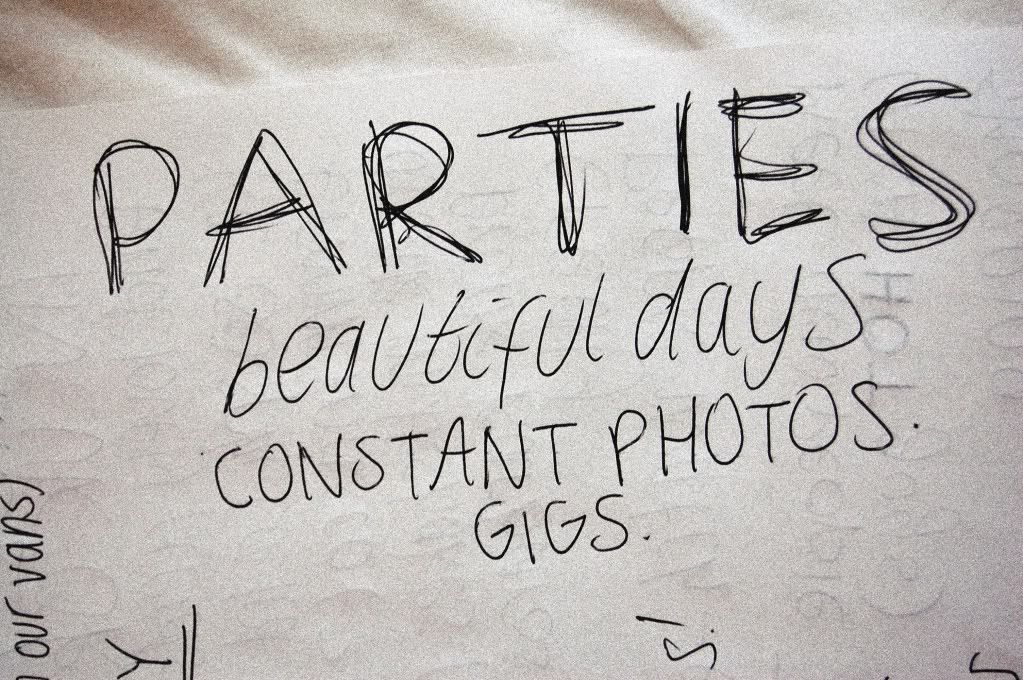 PARTIES
beautiful days
CONSTANT PHOTOS.
GIGS.
our vans)